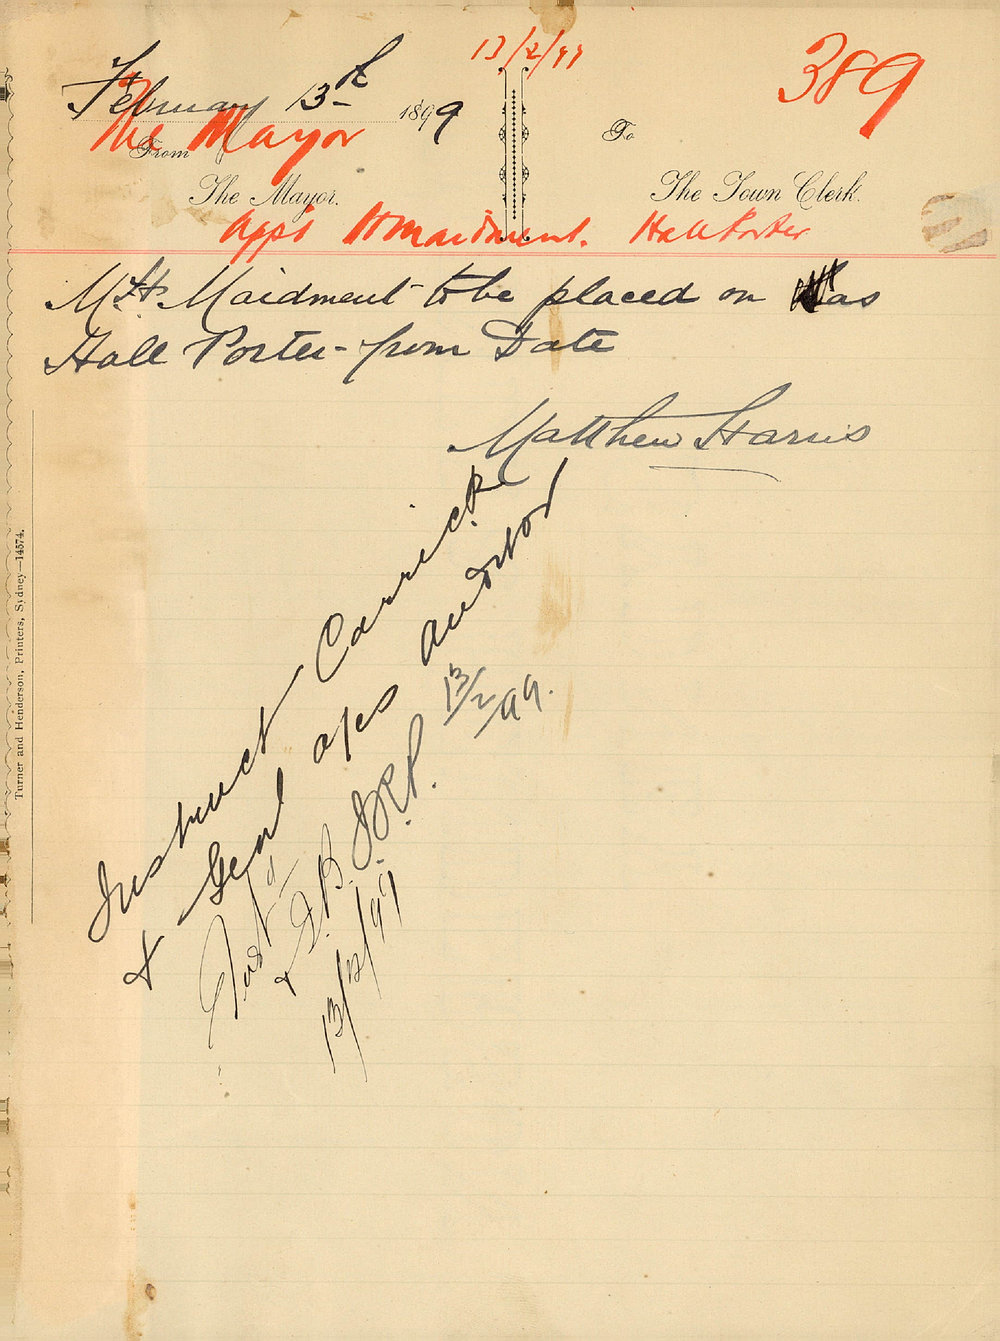 13/2/99
389
February 13th 1899
The Mayor
From
To
The Mayor.
The Town Clerk.
Appt H Maidment. Hall Porter
Mr H Maidment to be placed on as
Hall Porter from Date
Matthew Harris
Instruct Carrick
& Genl a/cs auditor
13/2/99.
Inst d
& D.B.
13/2/99
Turner and Henderson, Printers, Sydney—14574.